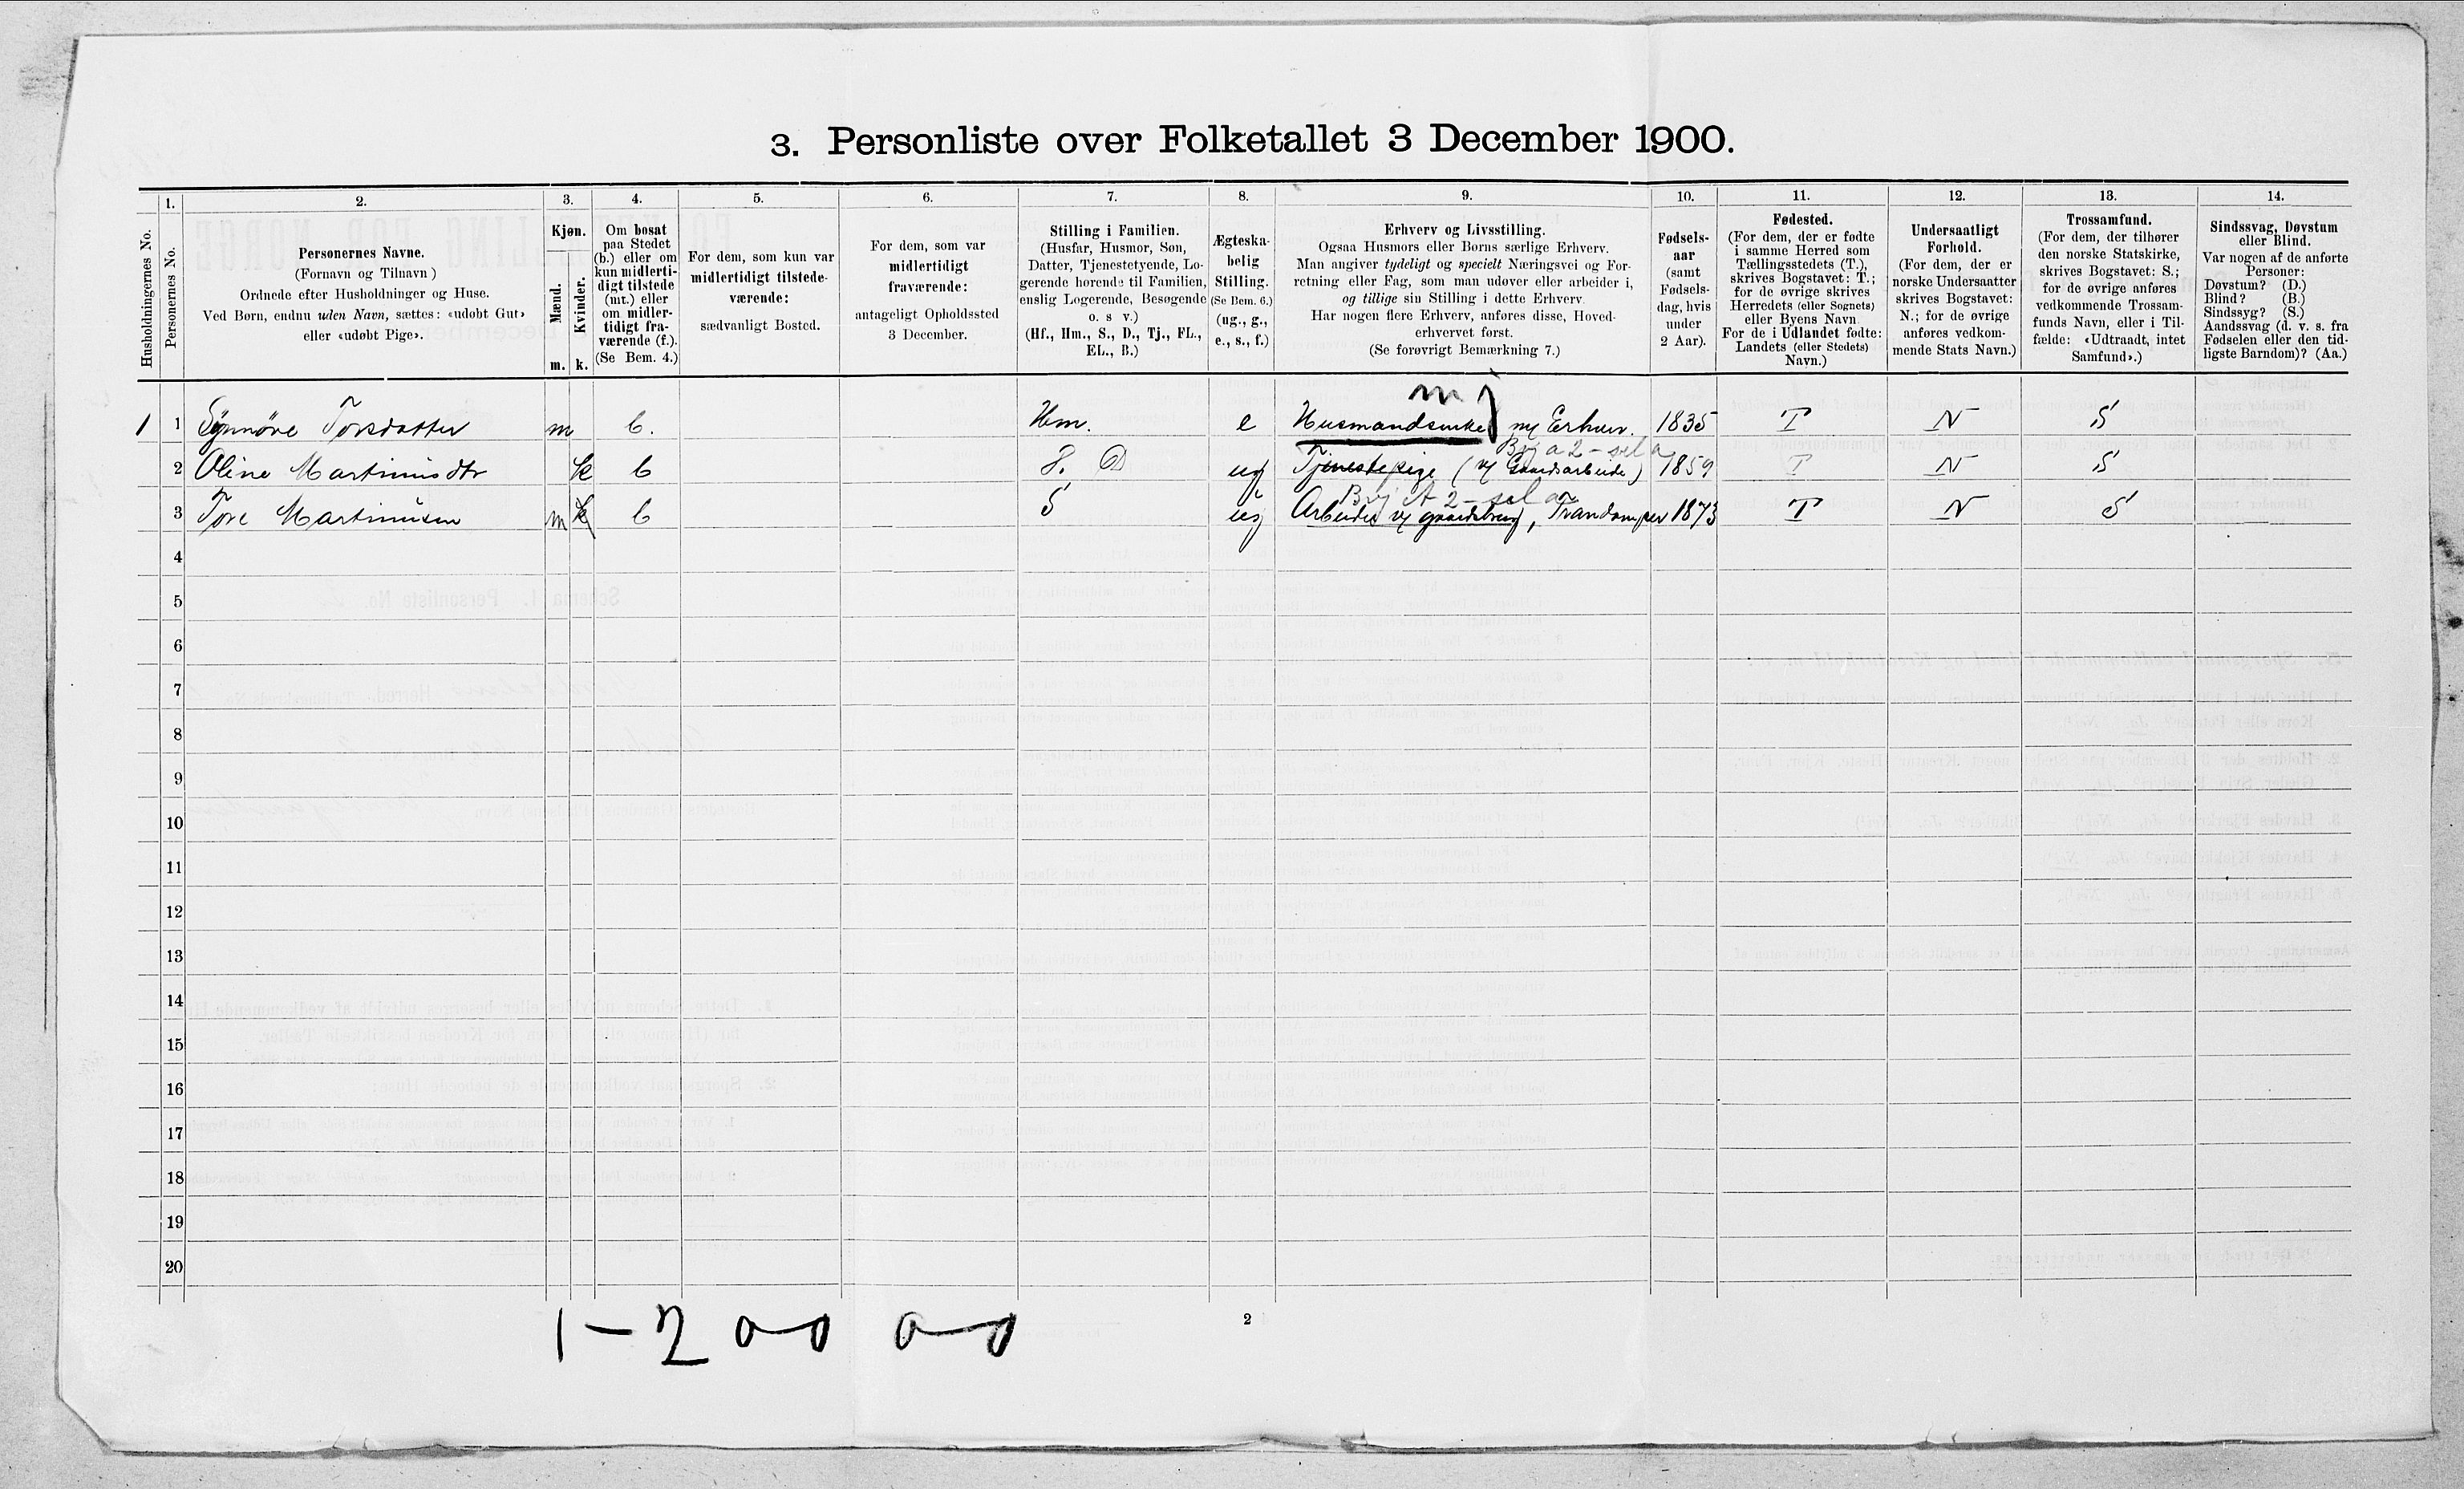 3. Personliste over Folketallet 3 December 1900.
1. 2. 3. 4. 5. 6. 7. 8. 9. 10. 11. 12. 13. 14.
Husholdningernes No.
Personernes No.
Personernes Navne.
(Fornavn og Tilnavn)
Ordnede efter Husholdninger og Huse.
Ved Børn, endnu uden Navn, sættes: «udøbt Gut»
eller «udøbt Pige».
Kjøn.
Mænd.
Kvinder.
m. k.
Om bosat
paa Stedet
(b.) eller om
kun midlerti-
digt tilstede
(mt.) eller
om midler-
tidigt fra-
værende (f.).
(Se Bem. 4.)
For dem, som kun var
midlertidigt tilstede-
værende:
sædvanligt Bosted.
For dem, som var
midlertidigt
fraværende:
antageligt Opholdssted
3 December.
Stilling i Familien.
(Husfar, Husmor, Søn,
Datter, Tjenestetyende, Lo-
gerende hørende til Familien,
enslig Logerende, Besøgende
o. s v.)
(Hf., Hm., S., D., Tj., FL.,
EL., B.)
Ægteska-
belig
Stilling.
(Se Bem. 6.)
(ug., g.,
e., s., f.)
Erhverv og Livsstilling.
Ogsaa Husmors eller Børns særlige Erhverv.
Man angiver tydeligt og specielt Næringsvei og For-
retning eller Fag, som man udøver eller arbeider i,
og tillige sin Stilling i dette Erhverv.
Har nogen flere Erhverv, anføres disse, Hoved-
erhvervet først.
(Se forøvrigt Bemærkning 7.)
Fødsels-
aar
(samt
Fødsels-
dag, hvis
under
2 Aar).
Fødested.
(For dem, der er fødte
i samme Herred som
Tællingsstedets (T.),
skrives Bogstavet: T.;
for de øvrige skrives
Herredets (eller Sognets)
eller Byens Navn
For de i Udlandet fødte:
Landets (eller Stedets)
Navn.)
Undersaatligt
Forhold.
(For dem, der er
norske Undersaatter
skrives Bogstavet:
N.; for de øvrige
anføres vedkom-
mende Stats Navn.)
Trossamfund.
(For dem, der tilhører
den norske Statskirke,
skrives Bogstavet: S.;
for de øvrige anføres
vedkommende Trossam-
funds Navn, eller i Til-
fælde: «Udtraadt, intet
Samfund».)
Sindssvag, Døvstum
eller Blind.
Var nogen af de anførte
Personer:
Døvstum? (D.)
Blind? (B.)
Sindssyg? (S.)
Aandssvag (d. v. s. fra
Fødselen eller den tid-
ligste Barndom)? (Aa.)
1 1 Synnöve Torsdatter m b. Hm. e Husmandsenke Erhverv. 1835 T N S
2 Oline Martinusdtr k b D ug Tjenestepige (v Gaardsarbeide) 1859 T N S
3 Tore Martinusen m k b S ug Arbeider v gaardsbrug, 1873 T N S
4
5
6
7
8
9
10
11
12
13
14
15
16
17
18
19
20
1 – 2
2